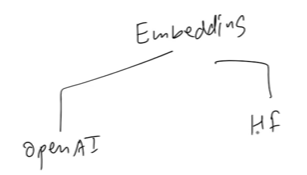 Embeddings
OpenAI
HF